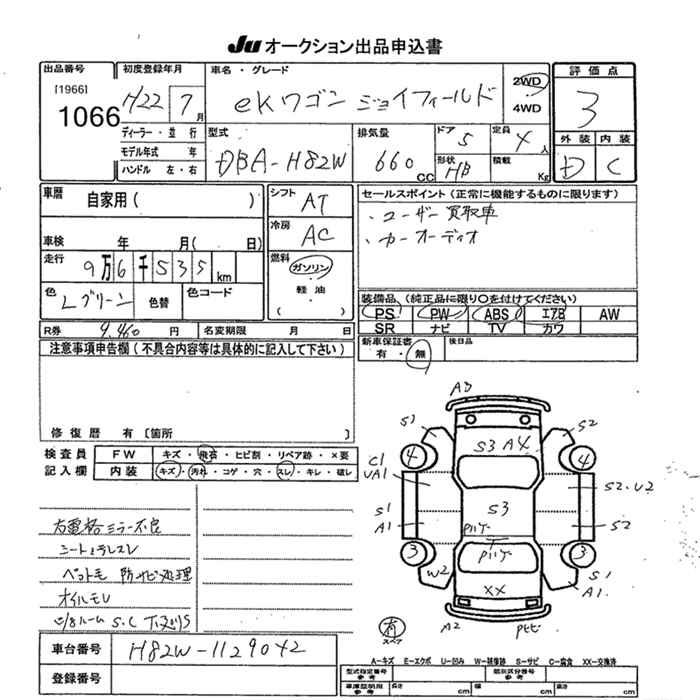 Ju オークション出品申込書
出品番号 初度登録年月 車名・グレード 評価点
[1966]
1066 H22 7月 eKワゴン ジョイフィールド 2WD 4WD 3
ディーラー・並行 型式 排気量 ドア 5 定員 4人 外装 内装
モデル年式 年 DBA-H82W 660cc 形状 HB 積載 Kg D C
ハンドル 左・右
車歴 自家用( ) シフト AT セールスポイント(正常に機能するものに限ります)
、ユーザー買取車
冷房 AC 、カーオーディオ
車検 年 月( 日)
走行 9万6千535km 燃料 ガソリン
軽油・
( )
色 Lグリーン 色替 色コード 装備品(純正品に限り○を付けてください)
PS PW ABS エアB AW
R券 9,460円 名変期限 月 日 SR ナビ TV カワ
注意事項申告欄(不具合内容等は具体的に記入して下さい) 新車保証書 有・無 後日品
修復歴 有〔箇所 〕
検査員 FW キズ・飛石・ヒビ割・リペア跡・×要
記入欄 内装 キズ・汚れ・コゲ・穴・スレ・キレ・破レ
A3
S1 S2
S3 A4
4 4
C1
UA1 S2・U2
S1
A1 S3 S2
3 3
W2 XX S1
A1
A2
有
右電格ミラー不良
シート
防サビ処理
オイルモレ
S.C
車台番号 H82W-1129042
登録番号
A-キズ E-エクボ U-凹み W-補修跡 S-サビ C-腐食 XX-交換済
型式指定番号 参考 類別区分番号 参考
車庫証明用 参考 長さ cm 幅 cm 高さ cm